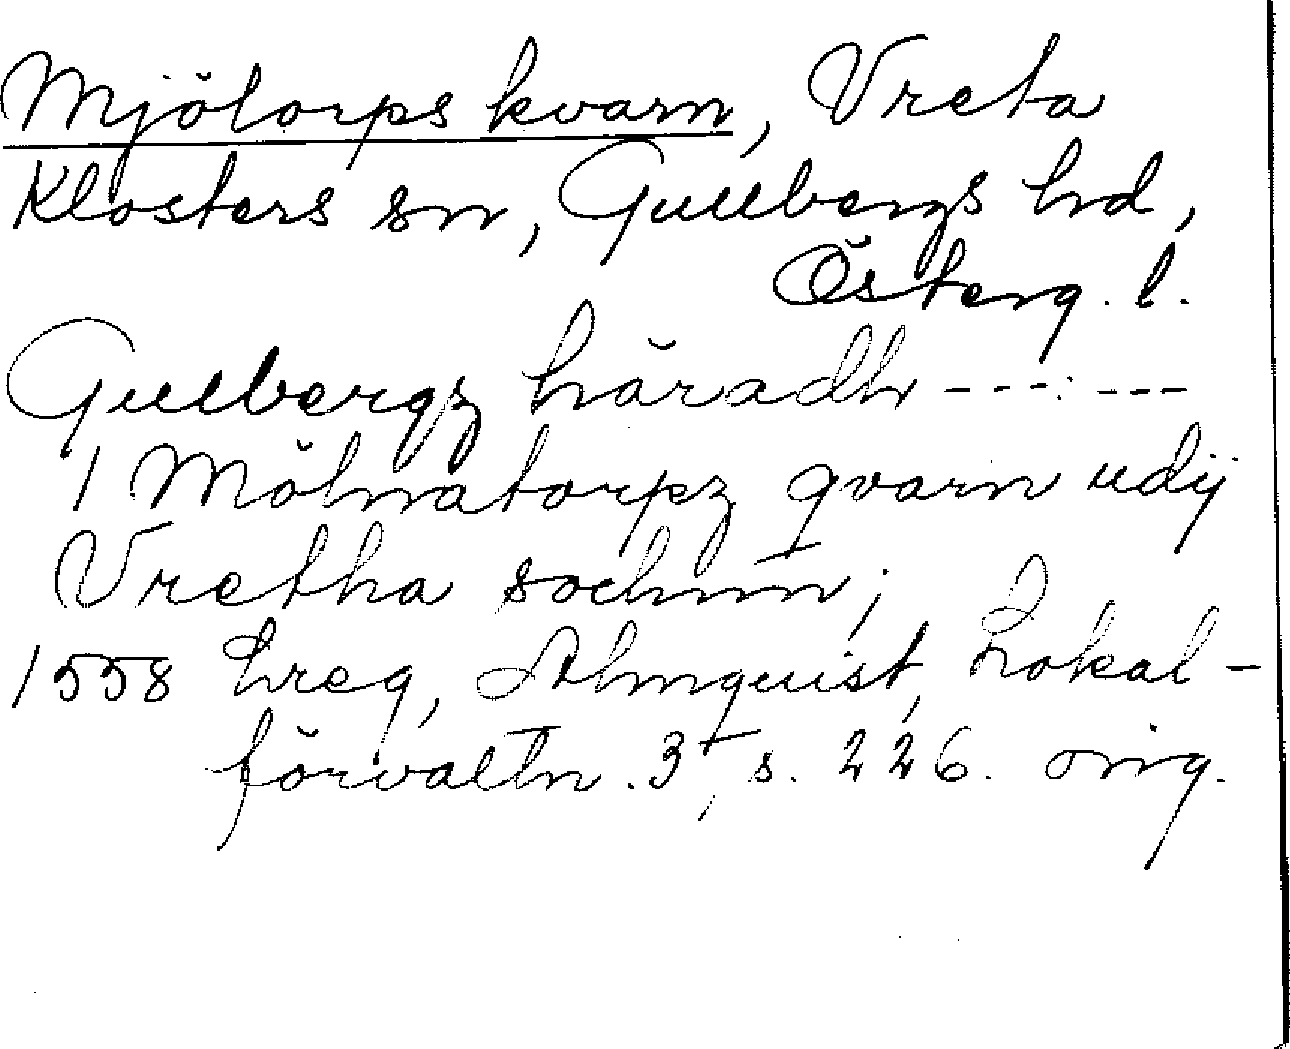 Mjötorps kvarn, Vreta
Klosters sn, Gullbergs hd,
Österg. l.
Gullbergz häradh - - - : - - -
1 Mölnatorpz qvarn udij
Vretha sochnn̄;
1558 hreg, Almquist, Lokal-
förvaltn. 3, s. 226. orig.